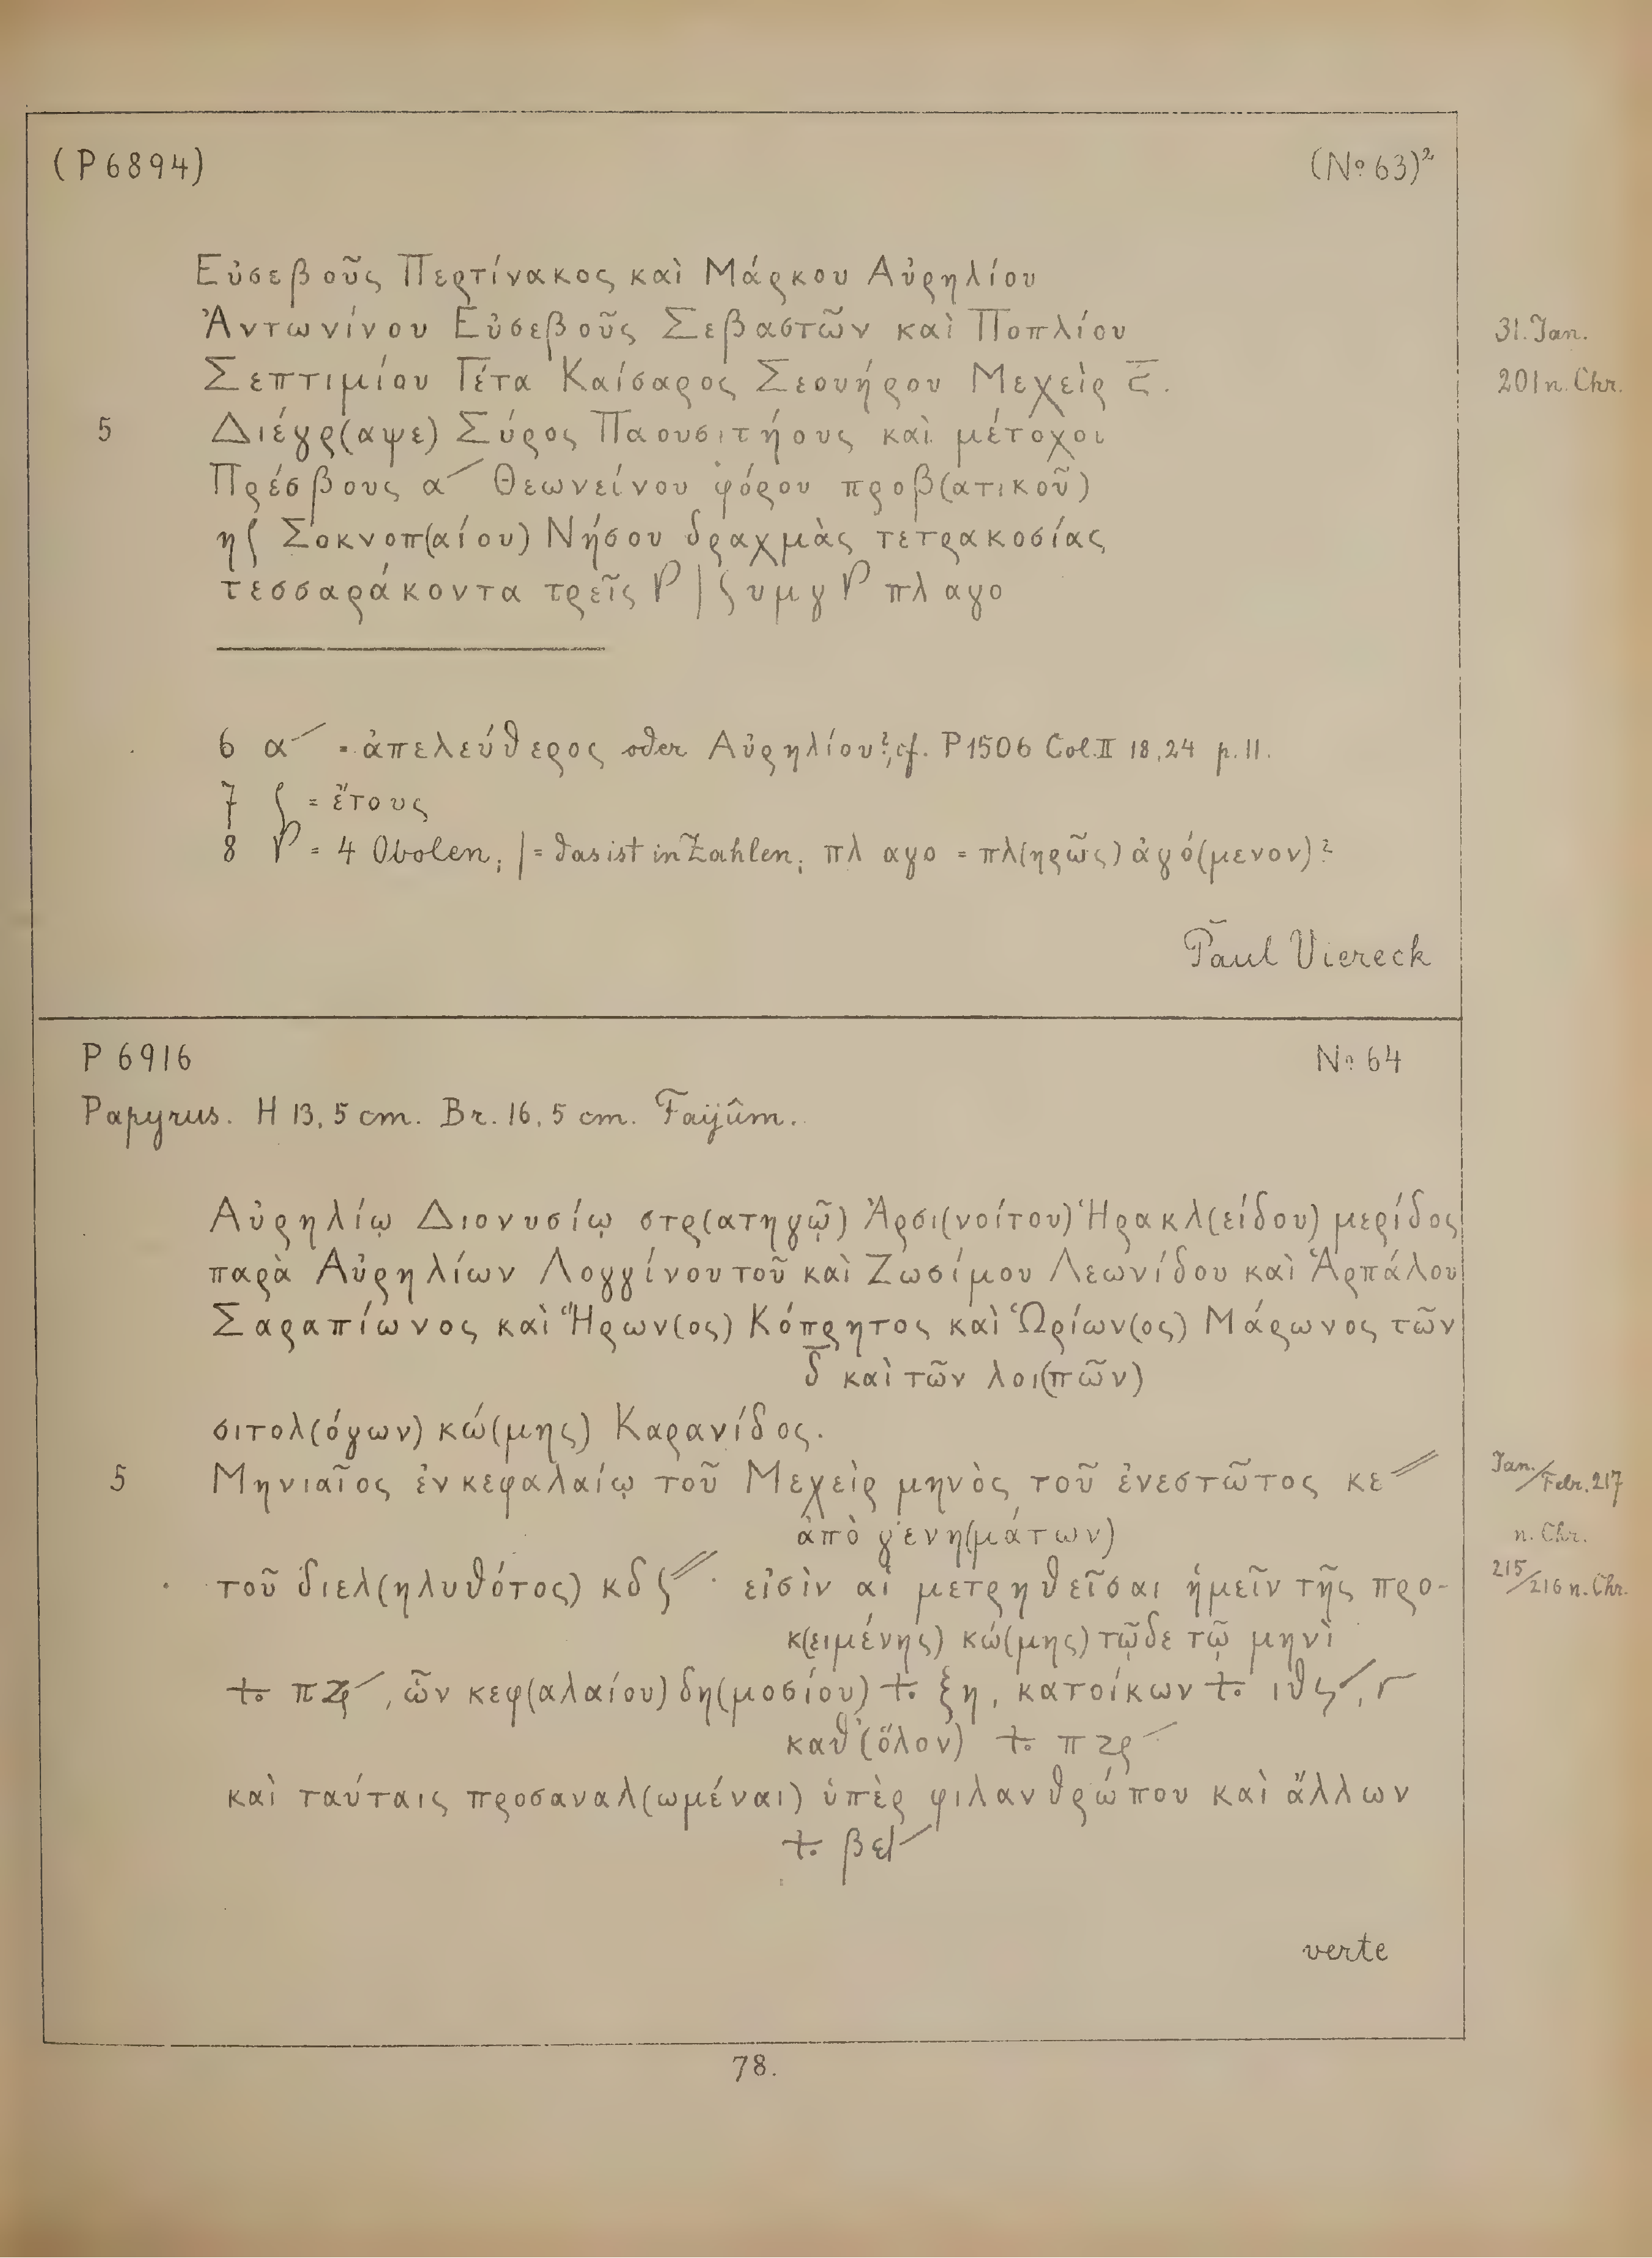 (P 6894) (No 63)²
Εὐσεβοῦς Περτίνακος καὶ Μάρκου Αὐρηλίου
Ἀντωνίνου Εὐσεβοῦς Σεβαστῶν καὶ Ποπλίου 31. Jan.
Σεπτιμίου Γέτα Καίσαρος Σεουήρου Μεχεὶρ ϛ̅. 201 n. Chr.
5 Διέγρ(αψε) Σύρος Παουσιτήους καὶ μέτοχοι
Πρέσβους α⸍ Θεωνείνου φόρου προβ(ατικοῦ)
ηʃ Σοκνοπ(αίου) Νήσου δραχμὰς τετρακοσίας
τεσσαράκοντα τρεῖς | ϛ υμγ πλ αγο
6 α⸍ = ἀπελεύθερος oder Αὐρηλίου?, cf. P 1506 Col. II 18,24 p. 11.
7 ʃ = ἔτους
8 = 4 Obolen; | = das ist in Zahlen; πλ αγο = πλ(ηρῶς) ἀγό(μενον)?
Paul Viereck
P 6916 No 64
Papyrus. H 13,5 cm. Br. 16,5 cm. Faijûm.
Αὐρηλίῳ Διονυσίῳ στρ(ατηγῷ) Ἀρσι(νοίτου) Ἡρακλ(είδου) μερίδος
παρὰ Αὐρηλίων Λογγίνου τοῦ καὶ Ζωσίμου Λεωνίδου καὶ Ἁρπάλου
Σαραπίωνος καὶ Ἥρων(ος) Κόπρητος καὶ Ὡρίων(ος) Μάρωνος τῶν
δ̅ καὶ τῶν λοι(πῶν)
σιτολ(όγων) κώ(μης) Καρανίδος.
5 Μηνιαῖος ἐν κεφαλαίῳ τοῦ Μεχεὶρ μηνὸς τοῦ ἐνεστῶτος κε⸗ Jan./Febr. 217
ἀπὸ γενη(μάτων) n. Chr.
τοῦ διελ(ηλυθότος) κδʃ⸗ εἰσὶν αἱ μετρηθεῖσαι ἡμεῖν τῆς προ- 215/216 n. Chr.
κ(ειμένης) κώ(μης) τῷδε τῷ μηνὶ
, ὧν κεφ(αλαίου) δη(μοσίου) ξη, κατοίκων
καθ(όλον)
καὶ ταύταις προσαναλ(ωμέναι) ὑπὲρ φιλανθρώπου καὶ ἄλλων
verte
78.